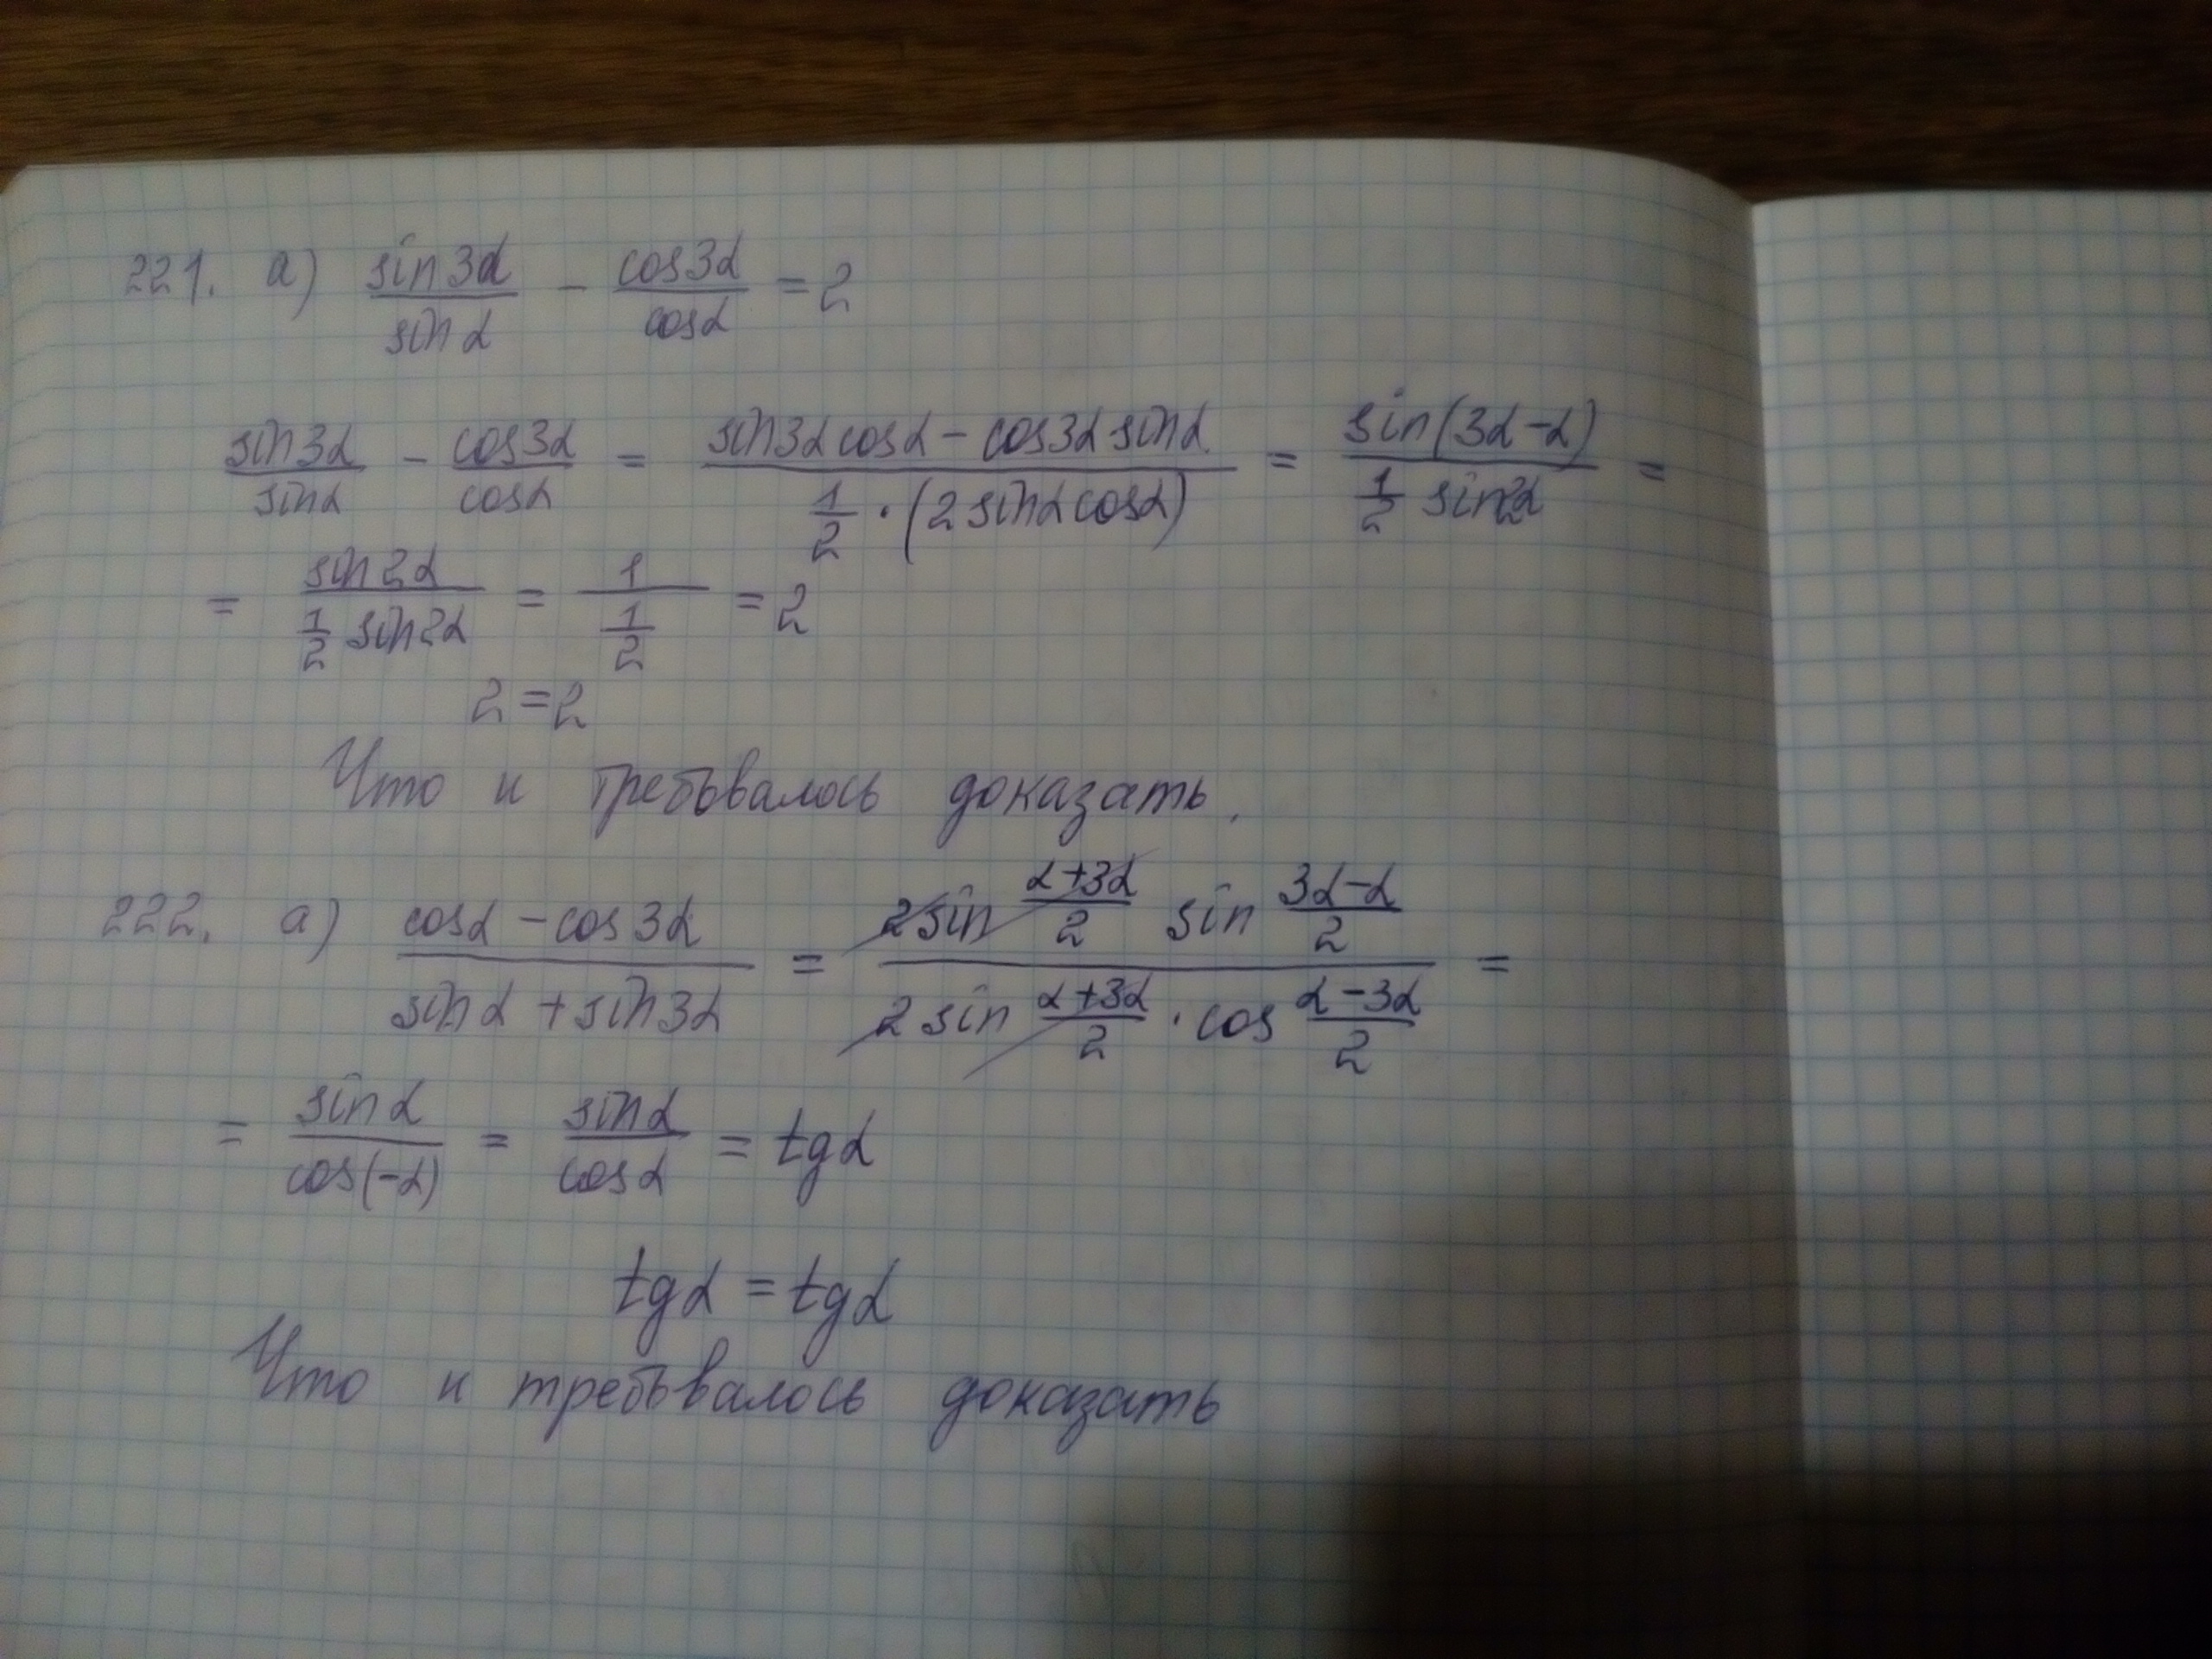 221. а) sin3α/sinα - cos3α/cosα = 2
sin3α/sinα - cos3α/cosα = (sin3αcosα - cos3αsinα)/(1/2 · (2sinαcosα)) = sin(3α-α)/(1/2 sin2α) =
= sin2α/(1/2 sin2α) = 1/(1/2) = 2
2 = 2
Что и требывалось доказать.
222. а) (cosα - cos3α)/(sinα + sin3α) = (2sin (α+3α)/2 sin (3α-α)/2)/(2sin (α+3α)/2 · cos (α-3α)/2) =
= sinα/cos(-α) = sinα/cosα = tgα
tgα = tgα
Что и требывалось доказать